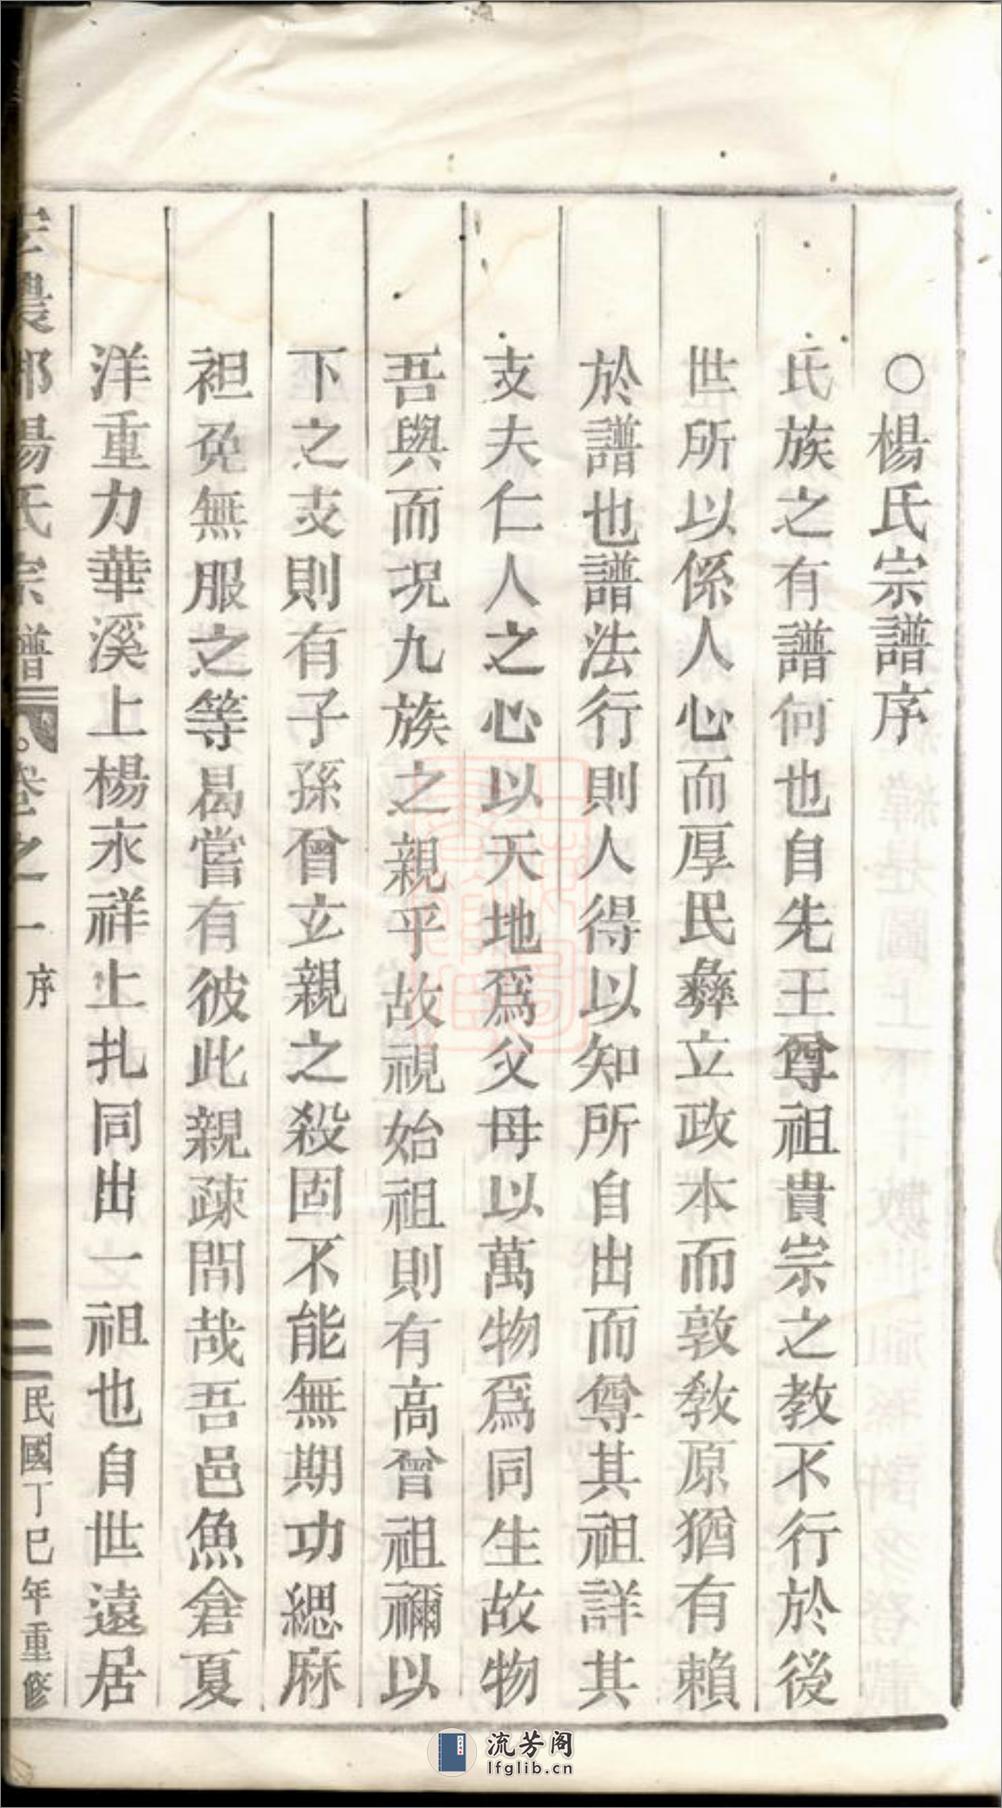 ○楊氏宗譜序
氏族之有譜何也自先王尊祖貴宗之教不行於後
世所以係人心而厚民彝立政本而敦教原猶有賴
於譜也譜法行則人得以知所自出而尊其祖詳其
支夫仁人之心以天地爲父母以萬物爲同生故物
吾與而况九族之親乎故視始祖則有高曾祖禰以
下之支則有子孫曾立親之殺固不能無期功緦麻
袒免無服之等曷嘗有彼此親疎間哉吾邑魚倉夏
洋重力華溪上楊永祥上扎同出一祖也自世遠居
農郡楊氏宗譜 卷之一 序 二 民國丁巳年重修
流芳阁
lfglib.cn